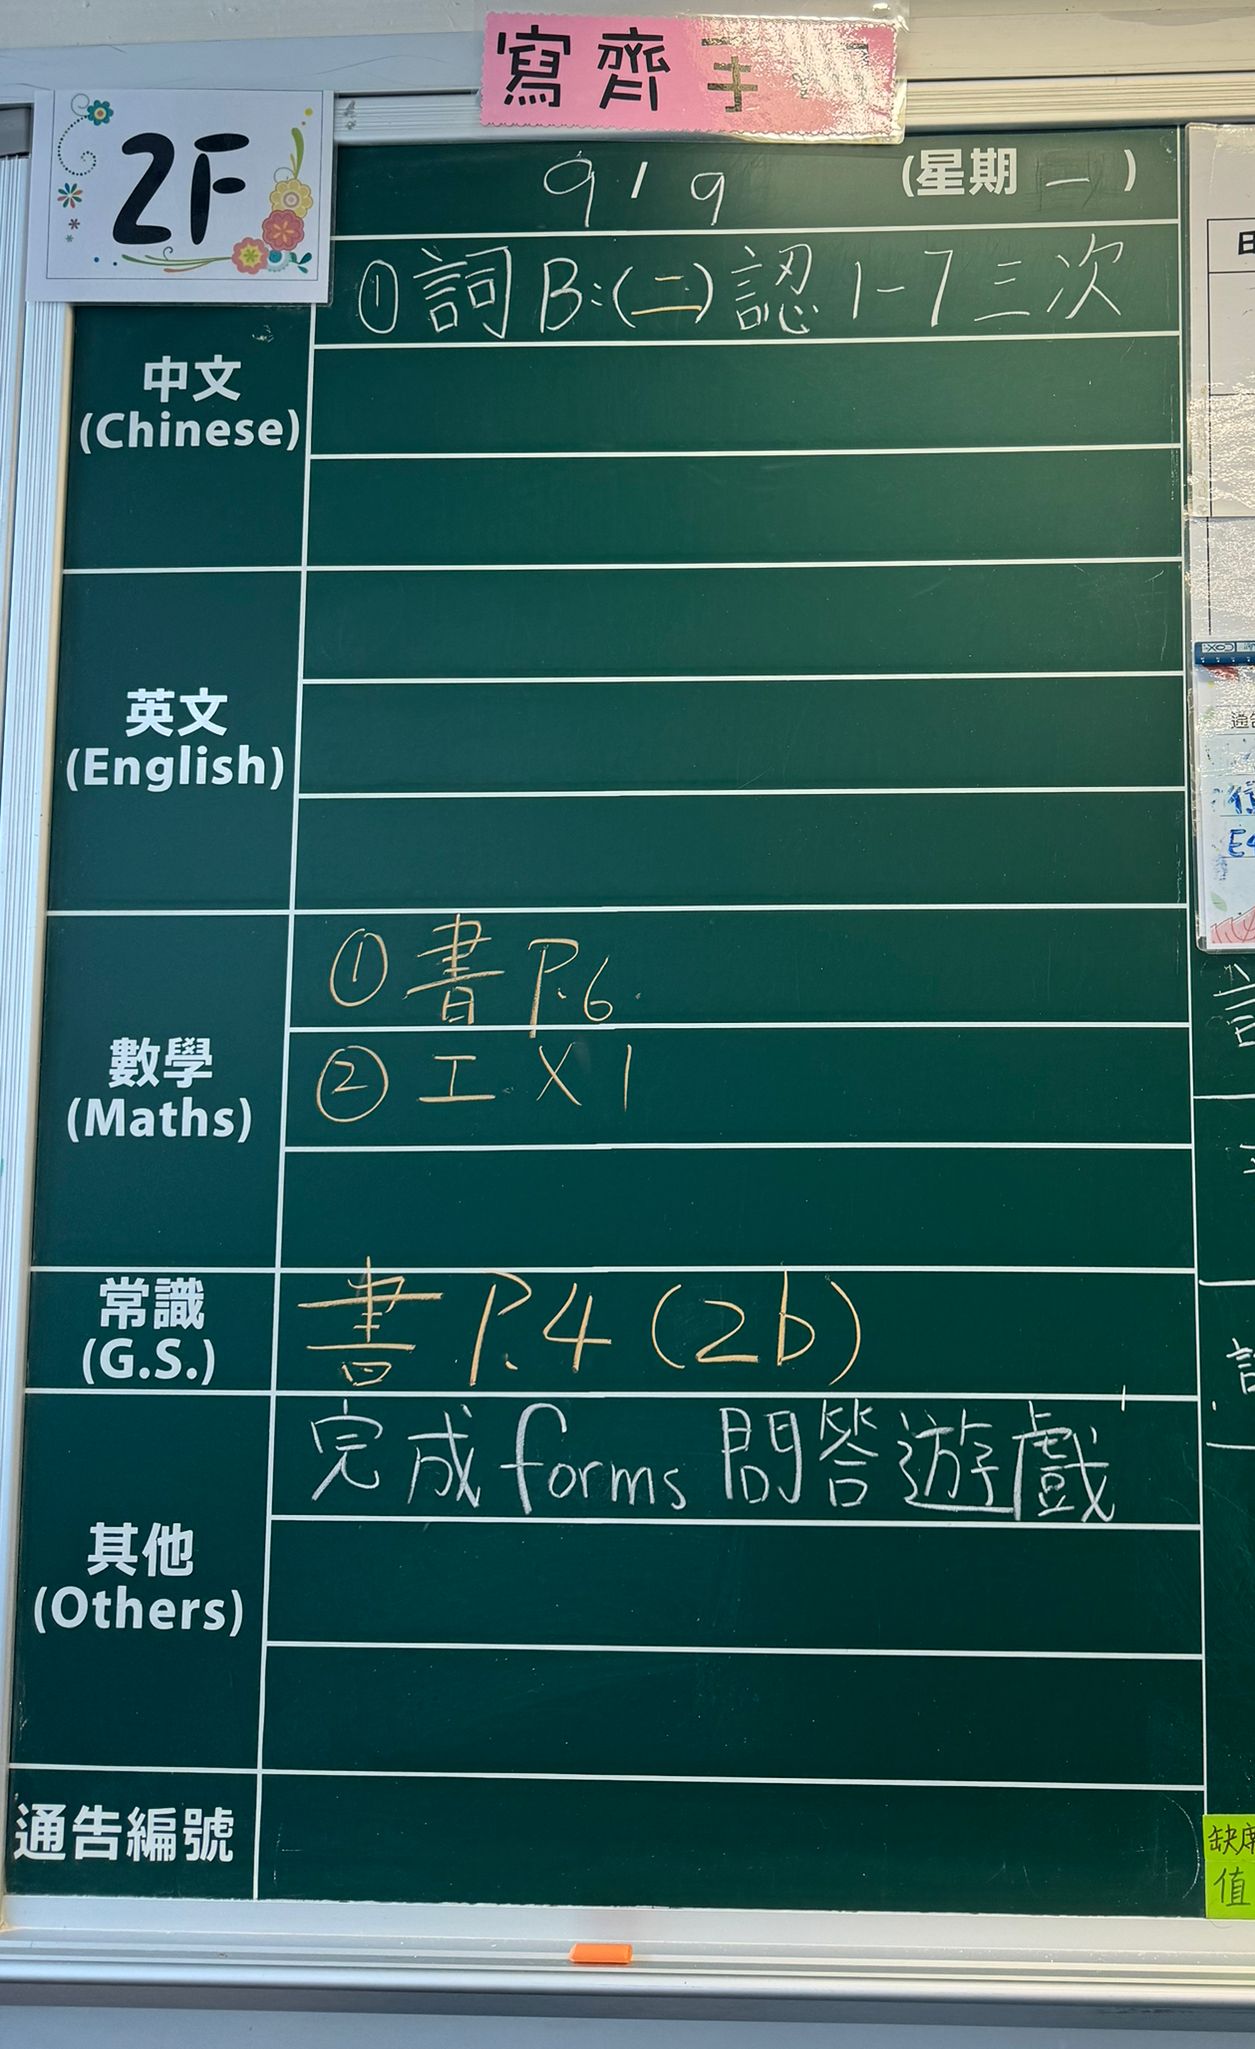 寫齊手
2F
9/9 (星期一)
①詞B:(二)認1-7三次
中文
(Chinese)
英文
(English)
①書P.6
②工X1
數學
(Maths)
常識
(G.S.)
書P.4(2b)
完成forms問答遊戲
其他
(Others)
通告編號
缺席
值